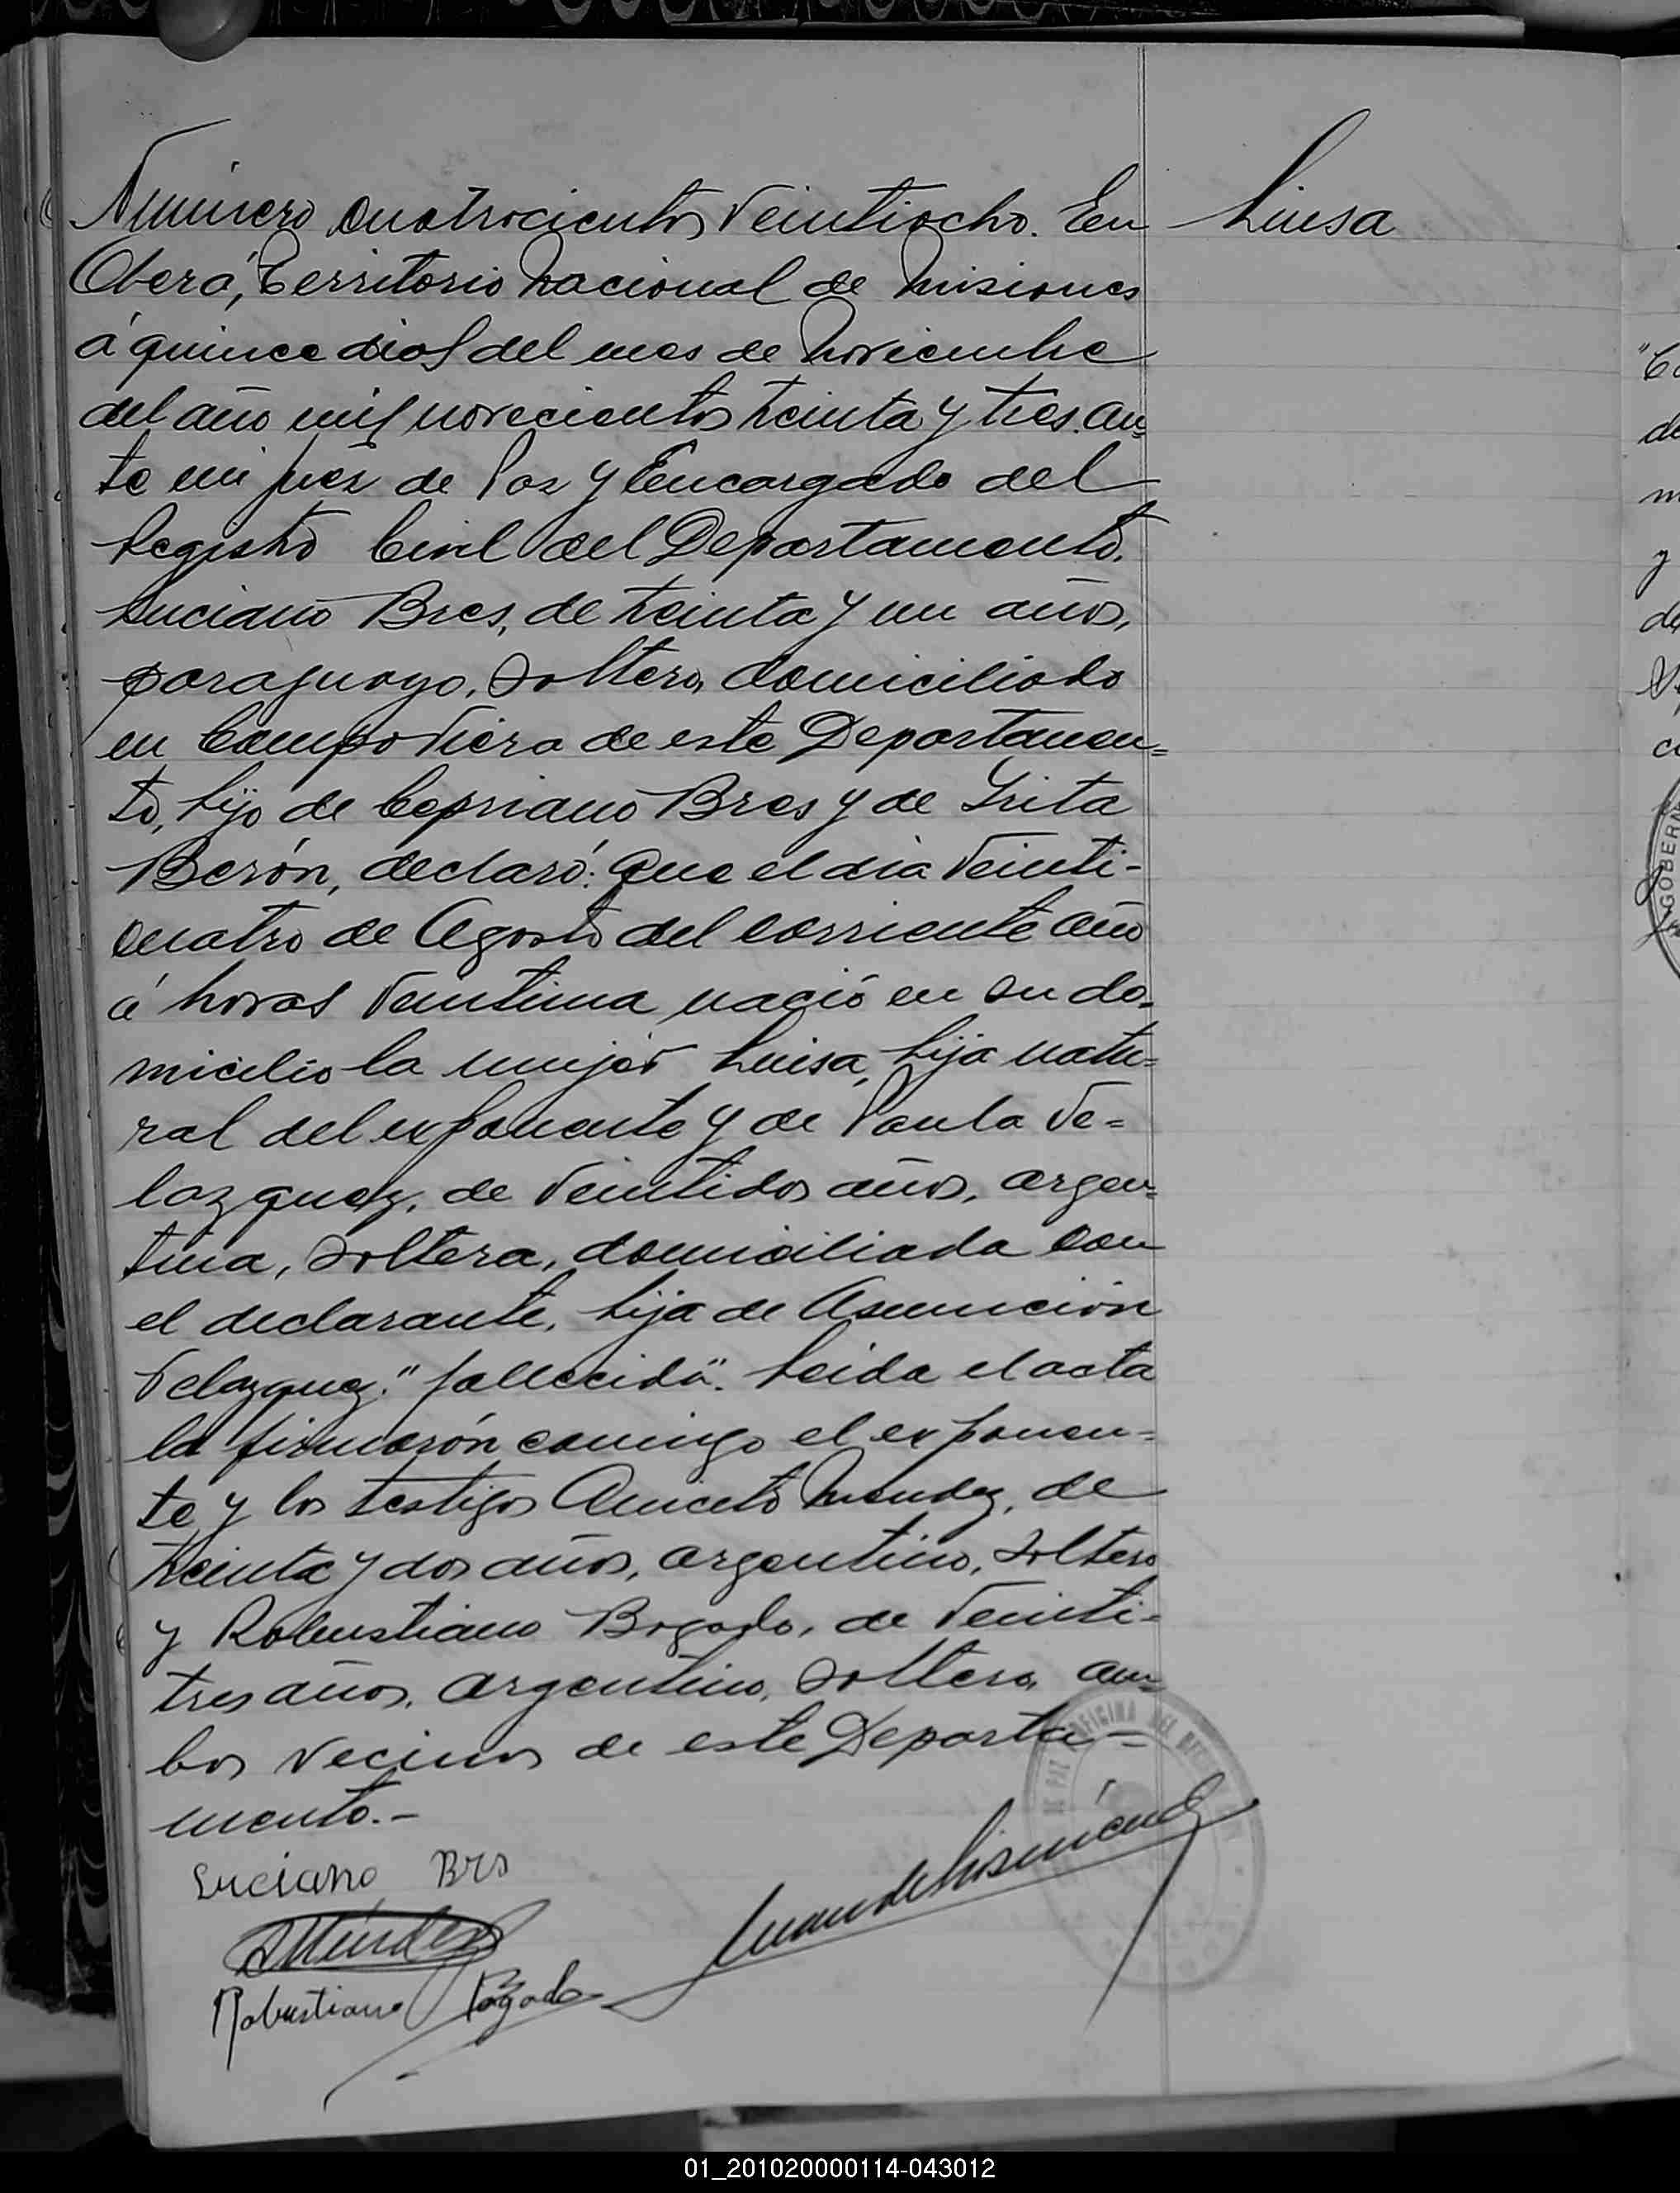 Número cuatrocientos veintiocho. En
Luisa
Oberá, Territorio Nacional de Misiones
á quince dias del mes de Noviembre
del año mil novecientos treinta y tres. an=
te mi Juez de Paz y Encargado del
Registro Civil del Departamento.
Luciano Bres, de treinta y un años,
paraguayo, soltero, domiciliado
en Campo Viera de este Departamen=
to, hijo de Cepriano Bres y de Grita
Berón, declaró: Que el dia veinti-
cuatro de Agosto del corriente año
á horas veintiuna nació en su do=
micilio la mujer Luisa, hija natu=
ral del exponente y de Paula Ve=
lazquez, de veintidos años, argen=
tina, soltera, domiciliada con
el declarante, hija de Asunción
Velazquez "fallecida". Leida el acta
la firmarón conmigo el exponen=
te y los testigos Aniceto Mendez, de
treinta y dos años, argentino, soltero
y Robustiano Bogado, de veinti-
tres años, argentino, soltero, am=
bos vecinos de este Departa-
mento.-
Luciano Brs
AMéndez
Robustiano Bogado
DE PAZ OFICINA DEL
GOBERN
01_201020000114-043012